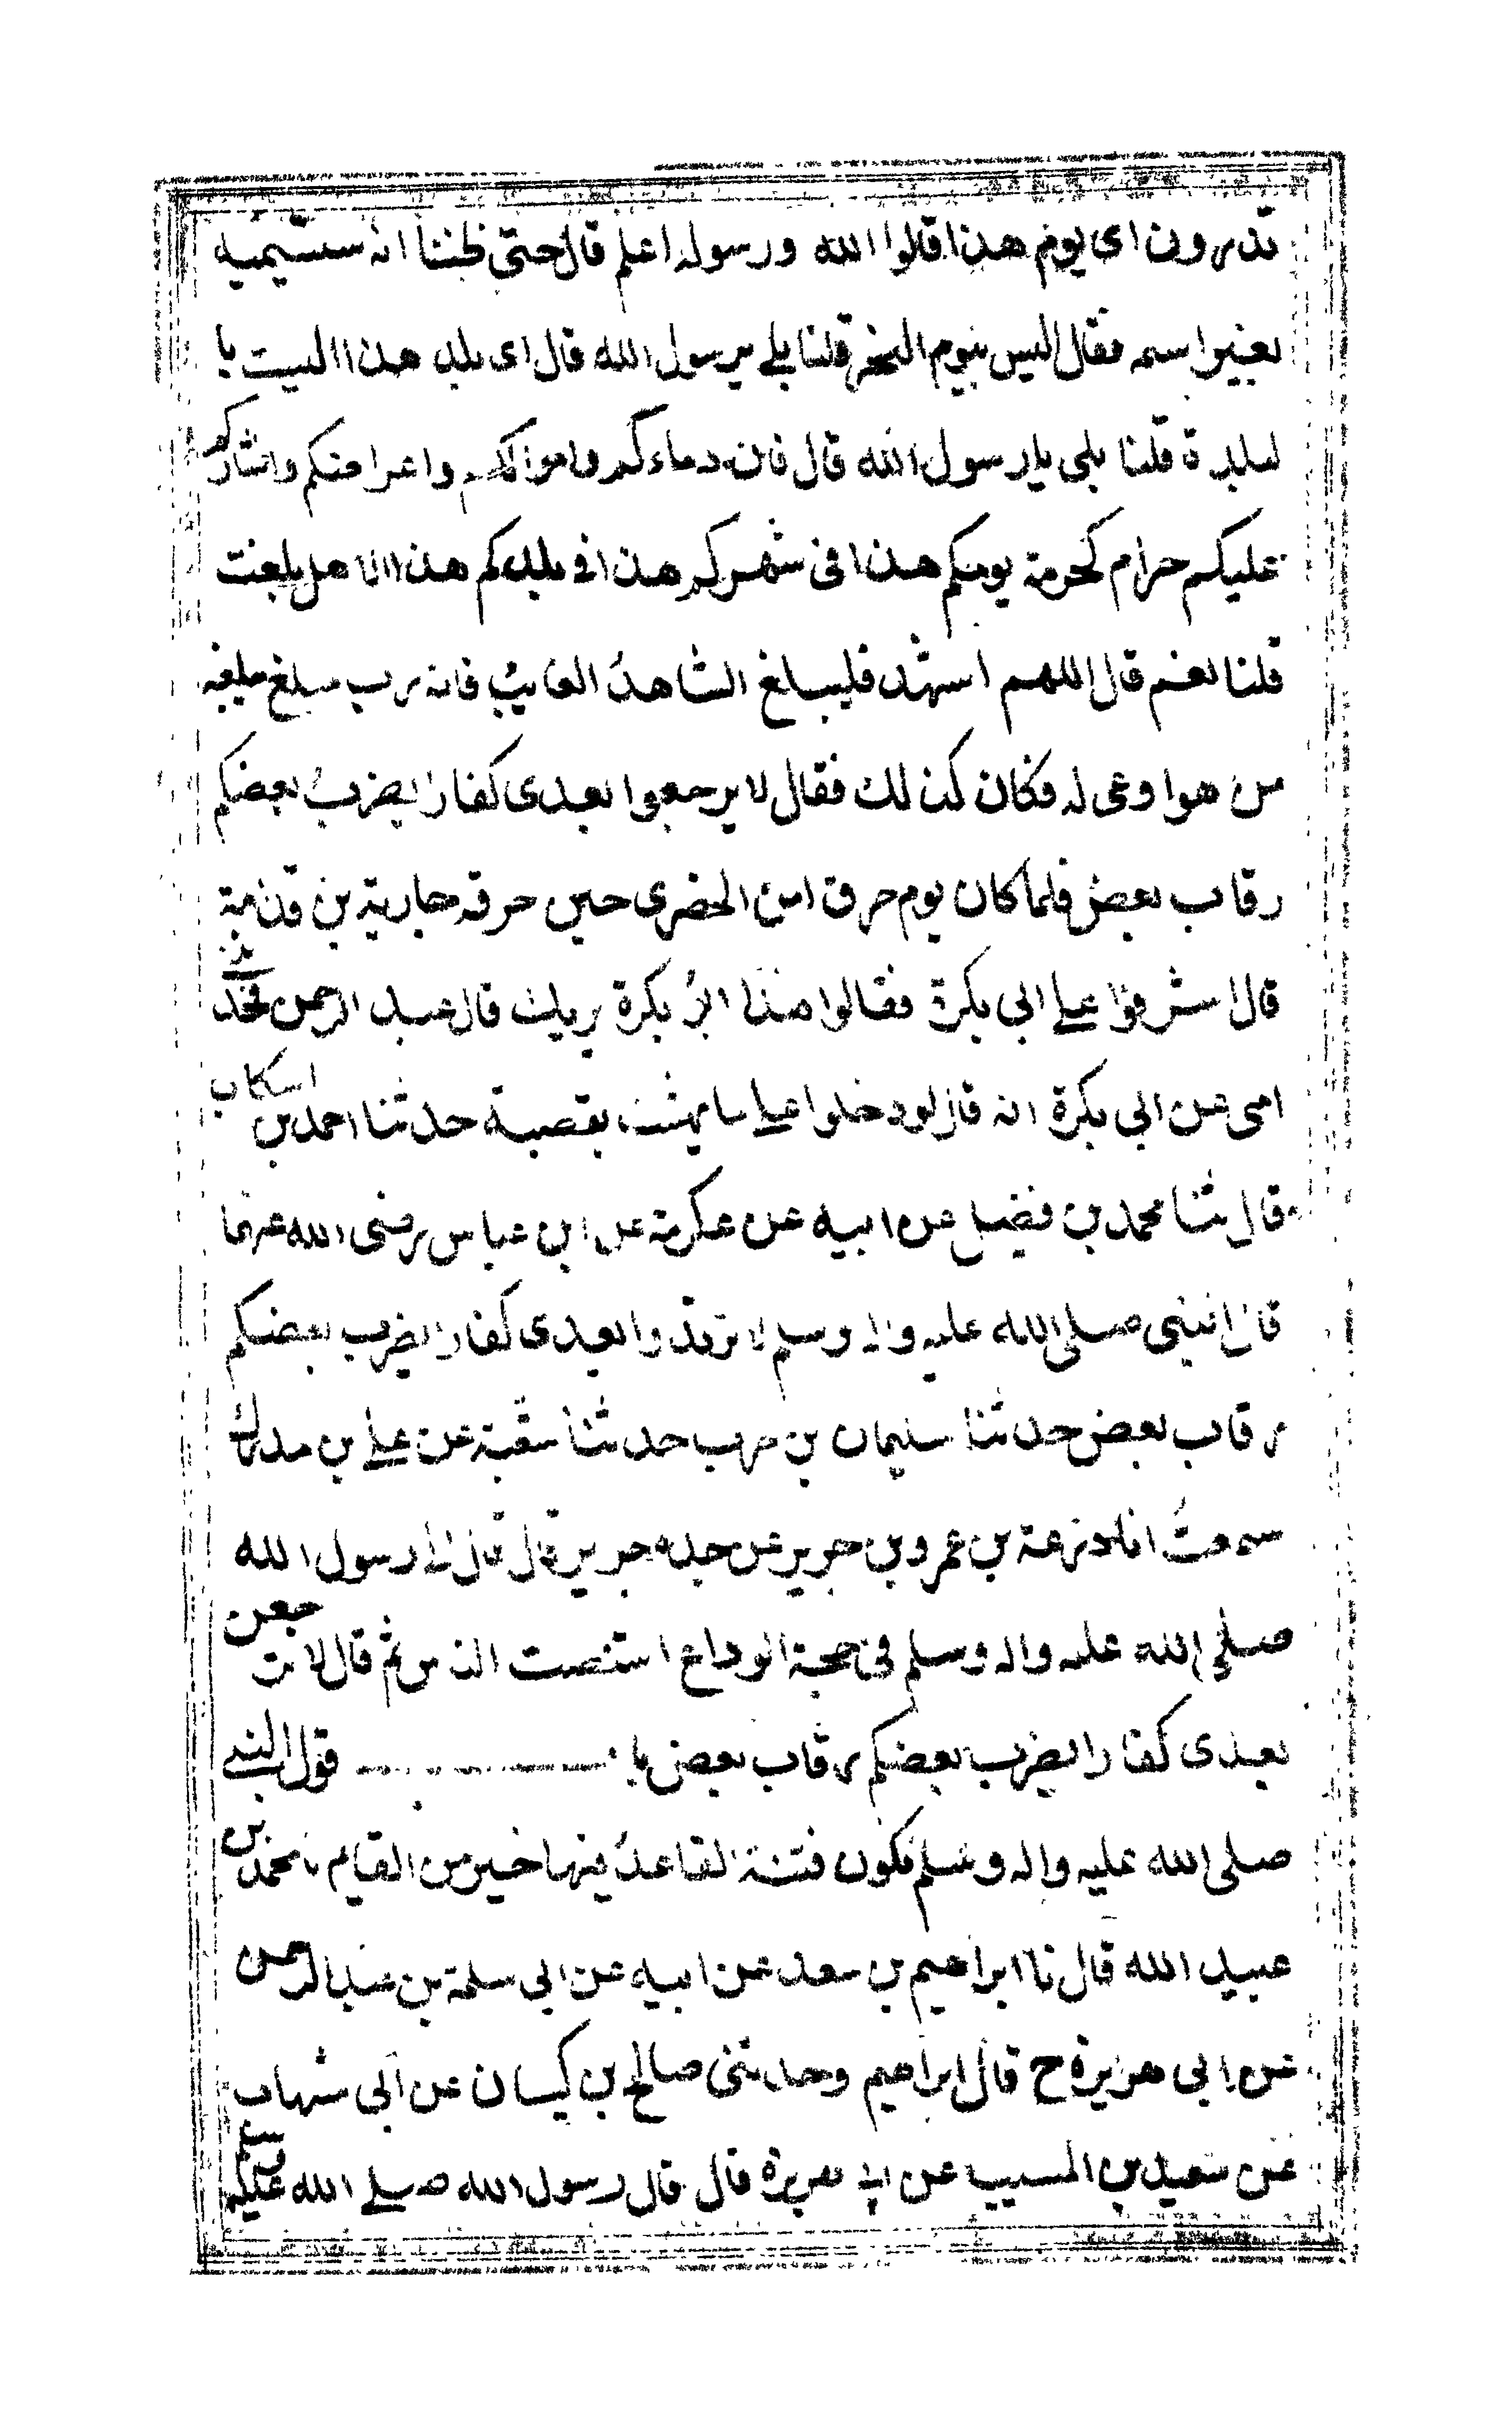 تدرون اى يوم هذا قالوا الله ورسوله اعلم قال حتى ظننا انه سيسميه
بغير اسمه فقال اليس بيوم النحر قلنا بلے يرسول الله قال اى بلد هذا اليست با
لبلدة قلنا بلى يارسول الله قال فان دماءكم واموالكم واعراضكم وابشاركم
عليكم حرام كحرمة يومكم هذا فى شهركم هذا فے بلدكم هذا الا هل بلغت
قلنا نعم قال اللهم اشهد فليبلغ الشاهدُ الغايبُ فانه رب مبلغ يبلغه
من هوا وعى له فكان كذلك فقال لا يرجعوا بعدى كفارا يضربُ بعضكم
رقاب بعض فلما كان يوم حرق ابن الحضرى حين حرقه جارية بن قدامة
قال اشرفوا علے ابى بكرة فقالوا هذا ابو بكرة يريك قال عبد الرحمن فحدثتنے
امى عن ابى بكرة انه قال لو دخلوا علے ما بهشت بقصبة حدثنا احمد بن اسكاب
قال ثنا محمد بن فضيل عن ابيه عن عكرمة عن ابن عباس رضى الله عنهما
قال النبى صلى الله عليه واله وسلم لا ترتدوا بعدى كفارا يضرب بعضكم
رقاب بعض حدثنا سليمان بن حرب حدثنا شعبة عن علے بن مدرك
سمعتُ ابا زرعة بن عمرو بن جرير عن جده جرير قال قال لے رسول الله
صلى الله عليه واله وسلم فى حجة الوداع استنصت الناس ثم قال لا ترجعن
بعدى كفارا يضرب بعضكم رقاب بعض با ب قول النبے
صلى الله عليه واله وسلم تكون فتنة القاعدُ فيها خير من القيام نا محمد بن
عبيد الله قال نا ابراهيم بن سعد عن ابيه عن ابى سلمة بن عبد الرحمن
عن ابى هريرة ح قال ابراهيم وحدثنى صالح بن كيسان عن ابى شهاب
عن سعيد بن المسيب عن ابے هريرة قال قال رسول الله صلے الله عليه وسلم